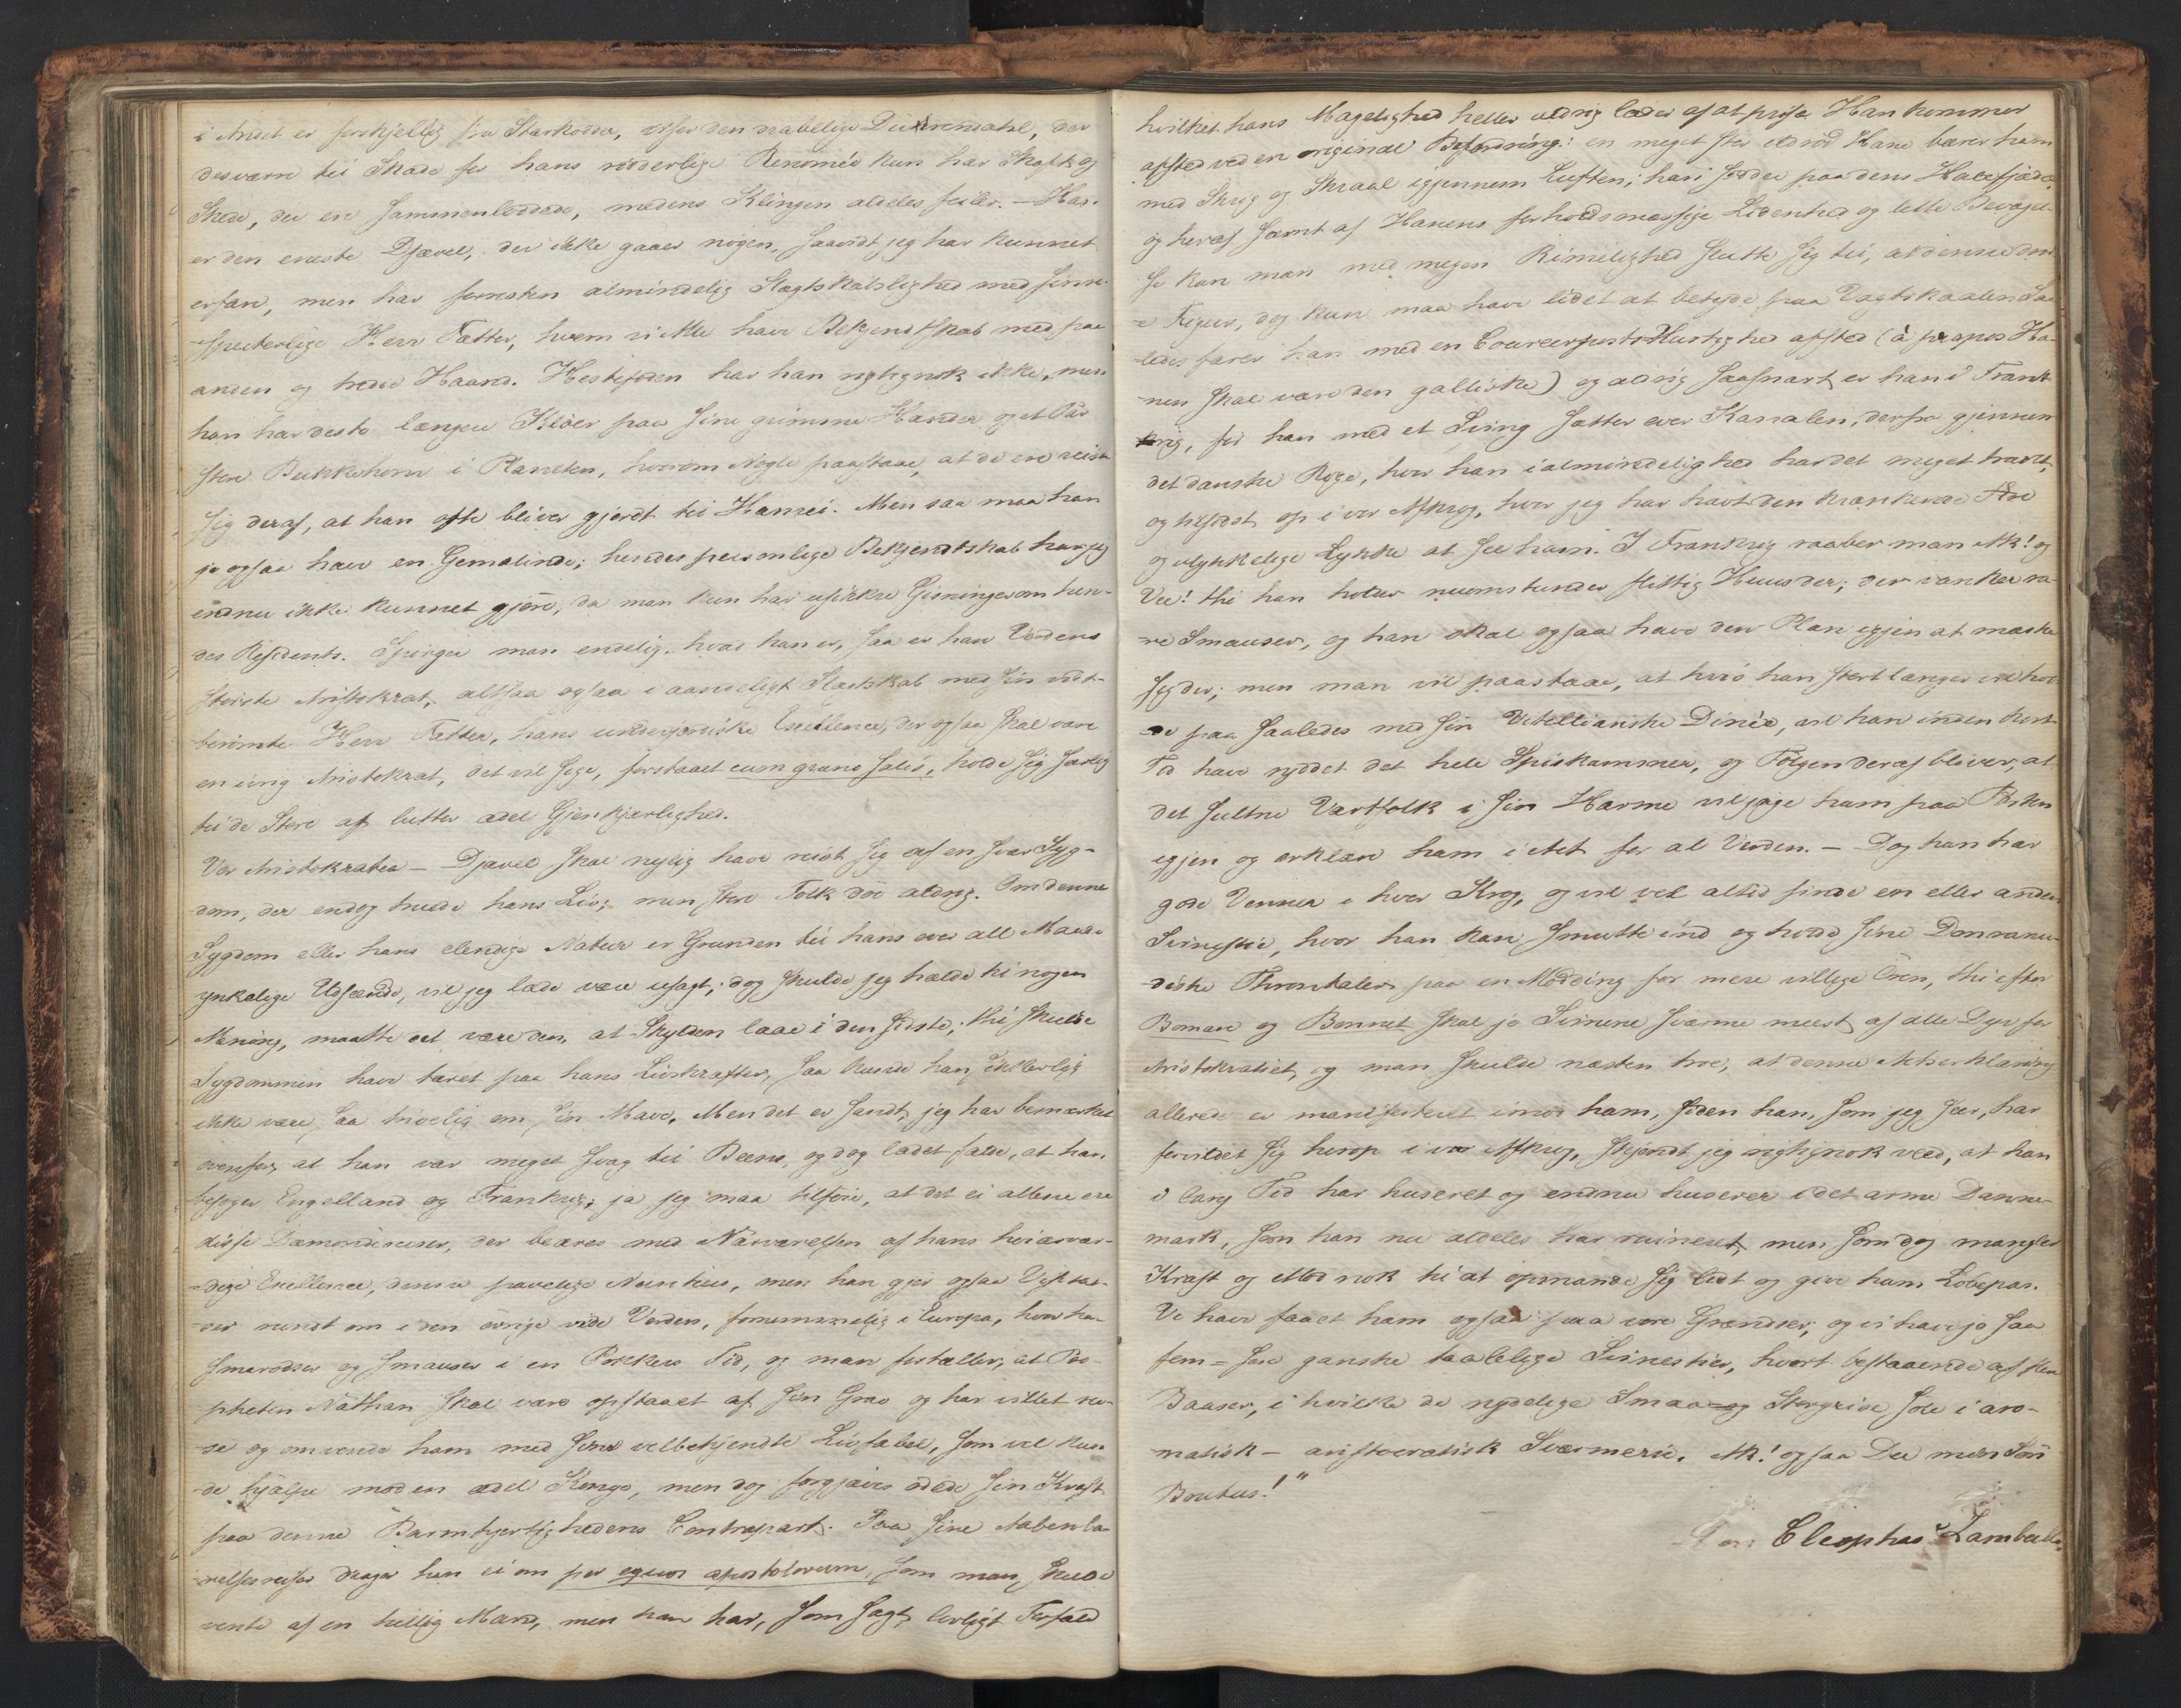 i Andet er forskjellig fra Starkodder, viser den navnlige Dürrendahl, der
desværre til Skade for hans ridderlige Renomée kun har Skaft og
Skede, der ere sammenloddede, medens Klingen aldeles feiler. — Han
er den eneste Djævel, der ikke gaaer nøgen, saavidt jeg har kunnet
erfare, men har forresten almindelig Slægtskabslighed med sin re-
-spekterlige Herr Fætter, hvem vi Alle have Bekjendtskab med paa
anden og tredie Haand. Hestefoden har han rigtignok ikke, men
han har desto længere Kløer paa sine grimme Hænder og et Par
store Bukkehorn i Planeten, hvorom Nogle paastaae, at de ere reiste
sig deraf, at han ofte bliver gjordt til Hanrei. Men saa maa han
jo ogsaa have en Gemalinde; hendes personlige Bekjendtskab har jeg
endnu ikke kunnet gjöre, da man kun har usikkre Gisninger om hen-
des Residents. Spørger man endelig, hvad han er, saa er han Verdens
störste Aristokrat, altsaa ogsaa i aandeligt Slægtskab med sin vidt-
berömte Herr Fætter, hans underjordiske Excellence, der ogsaa skal være
en ivrig Aristokrat, det vil sige, forstaaet cum grano salis, holde sig særlig
til de Store af lutter ædel Gjenkjærlighed.
Vor Aristokratea - Djævel skal nylig have reist sig af en svær Syg-
dom, der endog truede hans Liv; men store Folk döe aldrig. Om denne
Sygdom eller hans elendige Natur er Grunden til hans over all Maade
ynkelige Udseende, vil jeg lade være usagt; dog skulde jeg hælde til nogen
Mening, maatte det være den, at Skylden laae i den sidste; thi skulde
Sygdommen have tæret paa hans Livskræfter, saa kunde han sikkerlig
ikke være saa trivelig om sin Mave. Men det er sandt, jeg har bemærket
ovenfor, at han var meget svag til Beens, og dog ladet falde, at han
besøger Engelland og Frankrig; ja jeg maa tilföie, at det ei allene ere
disse Dæmondiniser, der beæres med Nærværelsen af hans höiærvær-
-dige Exellence, denne pavelige Nuntius, men han gjør ogsaa Visitat-
-ser rundt om i den övrige vide Verden, fornemmelig i Europa, hvor han
smarodser og smauser i en Pokkers Tid, og man fortæller, at Pro-
pheten Nathan skal være opstaaet af sin Grav og har villet rö-
re og omvende ham med sine velbekjendte Livfabel, som vel kun-
de hjælpe mod en ædel Konge, men dog forgjæves ödede sin Kraft
paa denne Barmhjertighedens Contrapart. Paa sine Aabenba-
relsesreiser drager han ei om per equos apostolorum, som man skulde
vente af en hellig Mand, men han har, som sagt, lovligt Forfald
hvilket hans Magelighed heller aldrig lader af at prise. Han kommer
afsted ved en original Befordring: en meget stor ildröd Hane bærer ham
med Skrig og Skraal igjennem Luften; han sidder paa dens Halefjædre
og heraf samt af Hanens forholdsmæssige Lidenhed og lette Bevægel-
se kan man med megen Rimelighed slutte sig til, at denne dor-
-e Figur, dog kun maa have lidet at betyde paa Vægtskaalen. Saa-
ledes farer han med en Courerposts-Hurtighed afsted (à propos Ha-
nen skal være den galliske) og aldrig saasnart er han i Frank-
rig, før han med et Sving sætter over Kanalen, derfra gjennem
det danske Rige, hvor han i almindelighed har det meget travlt
og tilsidst op i vor Afkrog, hvor jeg har havt den krænkende Ære
og ulykkelige Lykke at see ham. I Frankrig raaber man Ak! og
Vee! thi han holder nuomstunder flittig Huus der; der vanker ra-
re Smauser, og han skal ogsaa have den Plan igjen at mæske
sig der; men man vil paastaae, at hvis han stort længer vil hol-
de paa saaledes med sin Vitellianske Dinér, vil han inden kort
Tid have ryddet det hele Spiskammer, og Følgen deraf bliver, at
det sultne Værtfolk i sin Harme vil jage ham paa Pörten
igjen og erklære ham i Act for al Verden. — Dog han har
gode Venner i hver Krog, og vil vel altid finde en eller anden
Svinestie, hvor han kan smutte ind og holde sine Donranu-
diske Throntaler paa en Mødding for mere villige Ören, thi efter
Bomare og Bonnet skal jo Svinene sværme meest af alle Dyr for
Aristokratiet, og man skulde næsten troe, at denne Actserklæring
allerede er manifesteret imod ham, siden han, som jeg seer, har
forvildet sig herop i vor Afkrog, skjöndt jeg rigtignok veed, at han
i lang Tid har huseret og endnu huserer i det arme Danne-
mark, som han nu aldeles har ruineret, men som dog mangler
Kraft og Mod nok til at opmande sig lidt og give ham Löbepas.
Vi have faaet ham ogsaa paa vore Grændser, og vi have jo saa
fem - sex ganske taalelige Svinestier, hvert bestaaende af flere
Baaser, i hvilke de nydelige Smaa- og Storgrise söle i aro-
matisk - aristocratisk Sværmerie. Ak! ogsaa Du min Sön
Brutus!"
Cleophas Zambullo.